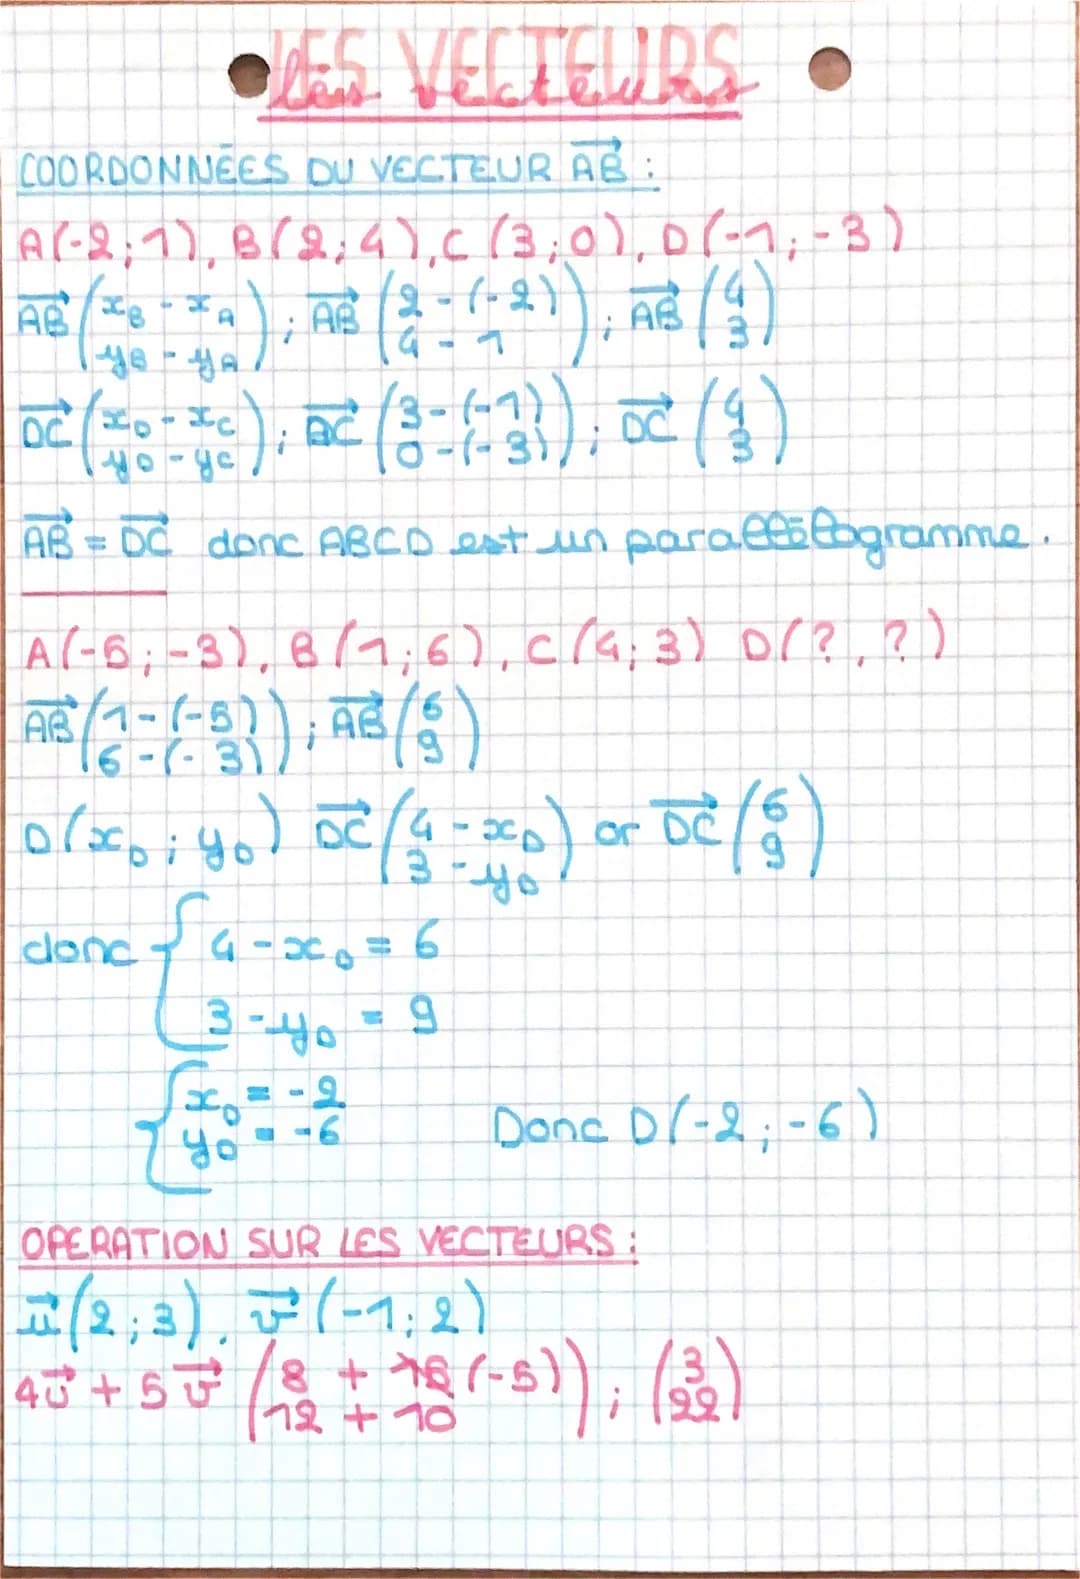 LES VECTEURS
les vecteurs
COORDONNÉES DU VECTEUR AB :
A(-2;1), B(2;4), C(3;0), D(-1;-3)
AB (xB - xA ; AB (2-(-2) ; AB (4
yB - yA) 4 - 1) 3)
DC (xD - xC ; DC (3-(-1) ; DC (4
yD - yC) 0-(-3)) 3)
AB = DC donc ABCD est un parallèlogramme.
A(-5;-3), B(1;6), C(4;3) D(?,?)
AB (1-(-5) ; AB (6
6-(-3)) 9)
D(xD ; yD) DC (4 - xD or DC (6
3 - yD) 9)
donc { 4 - xD = 6
3 - yD = 9
{ xD = -2
yD = -6 Donc D(-2;-6)
OPERATION SUR LES VECTEURS :
u(2;3), v(-1;2)
4u + 5v (8 + (-5) ; (3
12 + 10) 22)